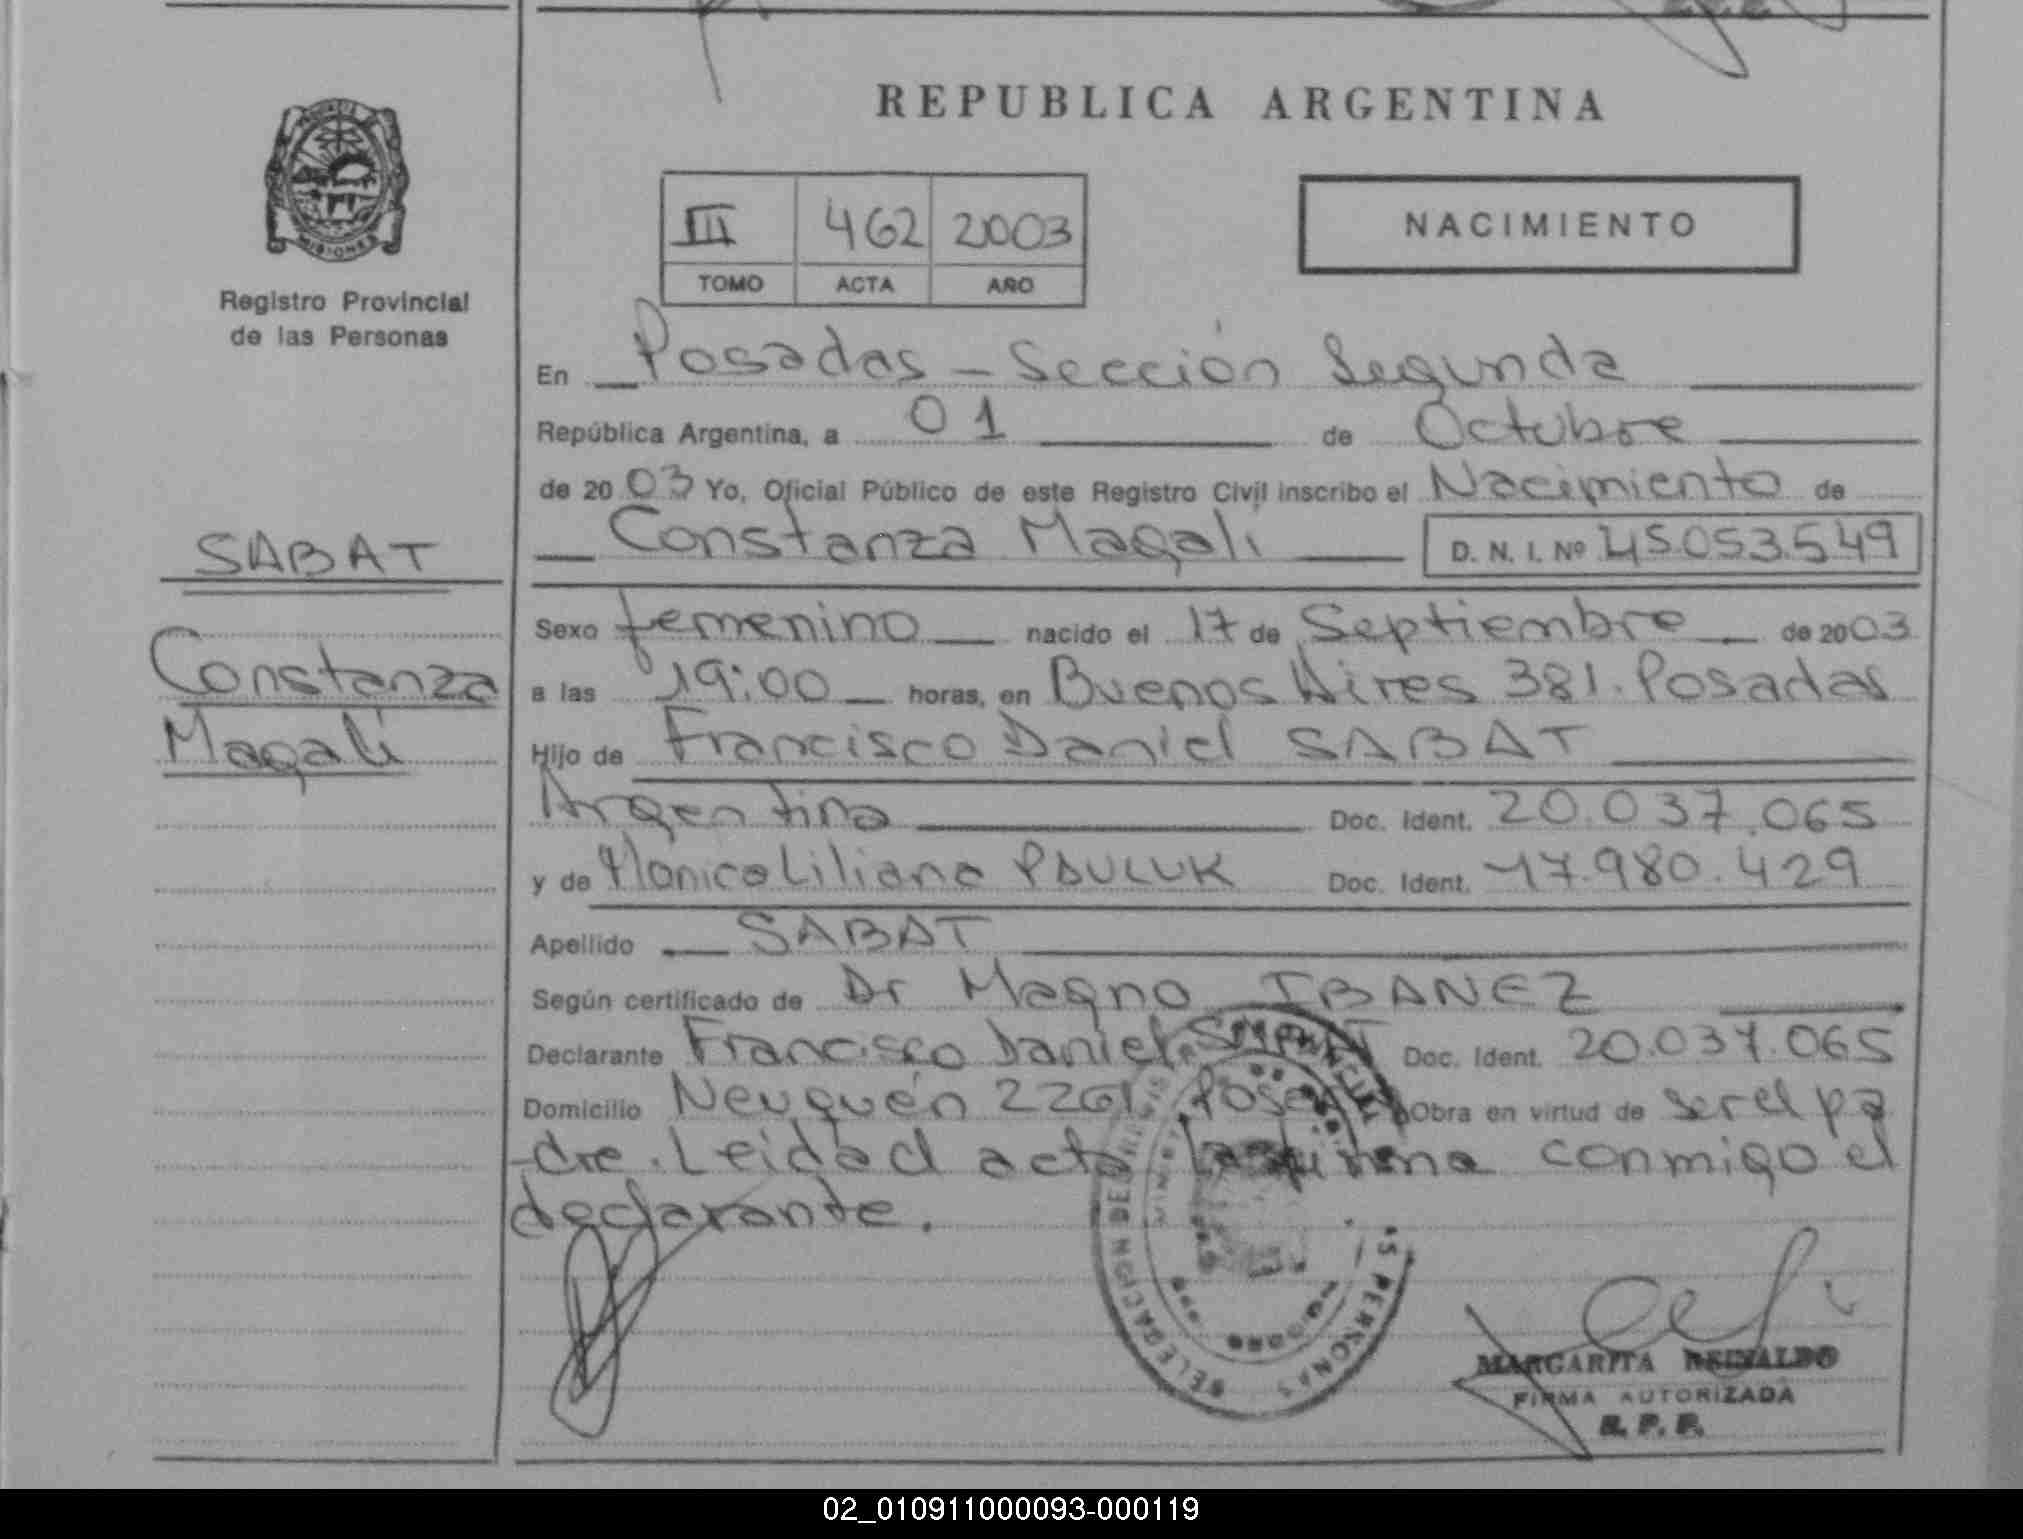 REPUBLICA ARGENTINA
MISIONES
Registro Provincial
de las Personas
III 462 2003
TOMO ACTA AÑO
NACIMIENTO
En Posadas - Sección Segunda
República Argentina, a 01 de Octubre
de 2003 Yo, Oficial Público de este Registro Civil inscribo el Nacimiento de
Constanza Magalí D. N. I. Nº 45.053.549
SABAT
Constanza
Magalí
Sexo femenino nacido el 17 de Septiembre de 2003
a las 19:00 horas, en Buenos Aires 381. Posadas
Hijo de Francisco Daniel SABAT
Argentina Doc. Ident. 20.037.065
y de Monica Liliana PAULUK Doc. Ident. 17.980.429
Apellido SABAT
Según certificado de Dr Magno IBANEZ
Declarante Francisco Daniel SABAT Doc. Ident. 20.037.065
Domicilio Neuquén 2261 Obra en virtud de ser el pa
dre. Leida el acta la firma conmigo el
declarante.
DELEGACION DE PERSONAS
MARGARITA REINALDO
FIRMA AUTORIZADA
R. P. P.
02_010911000093-000119